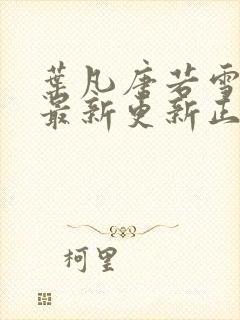 葉凡唐若雪
最新更新正
柯里